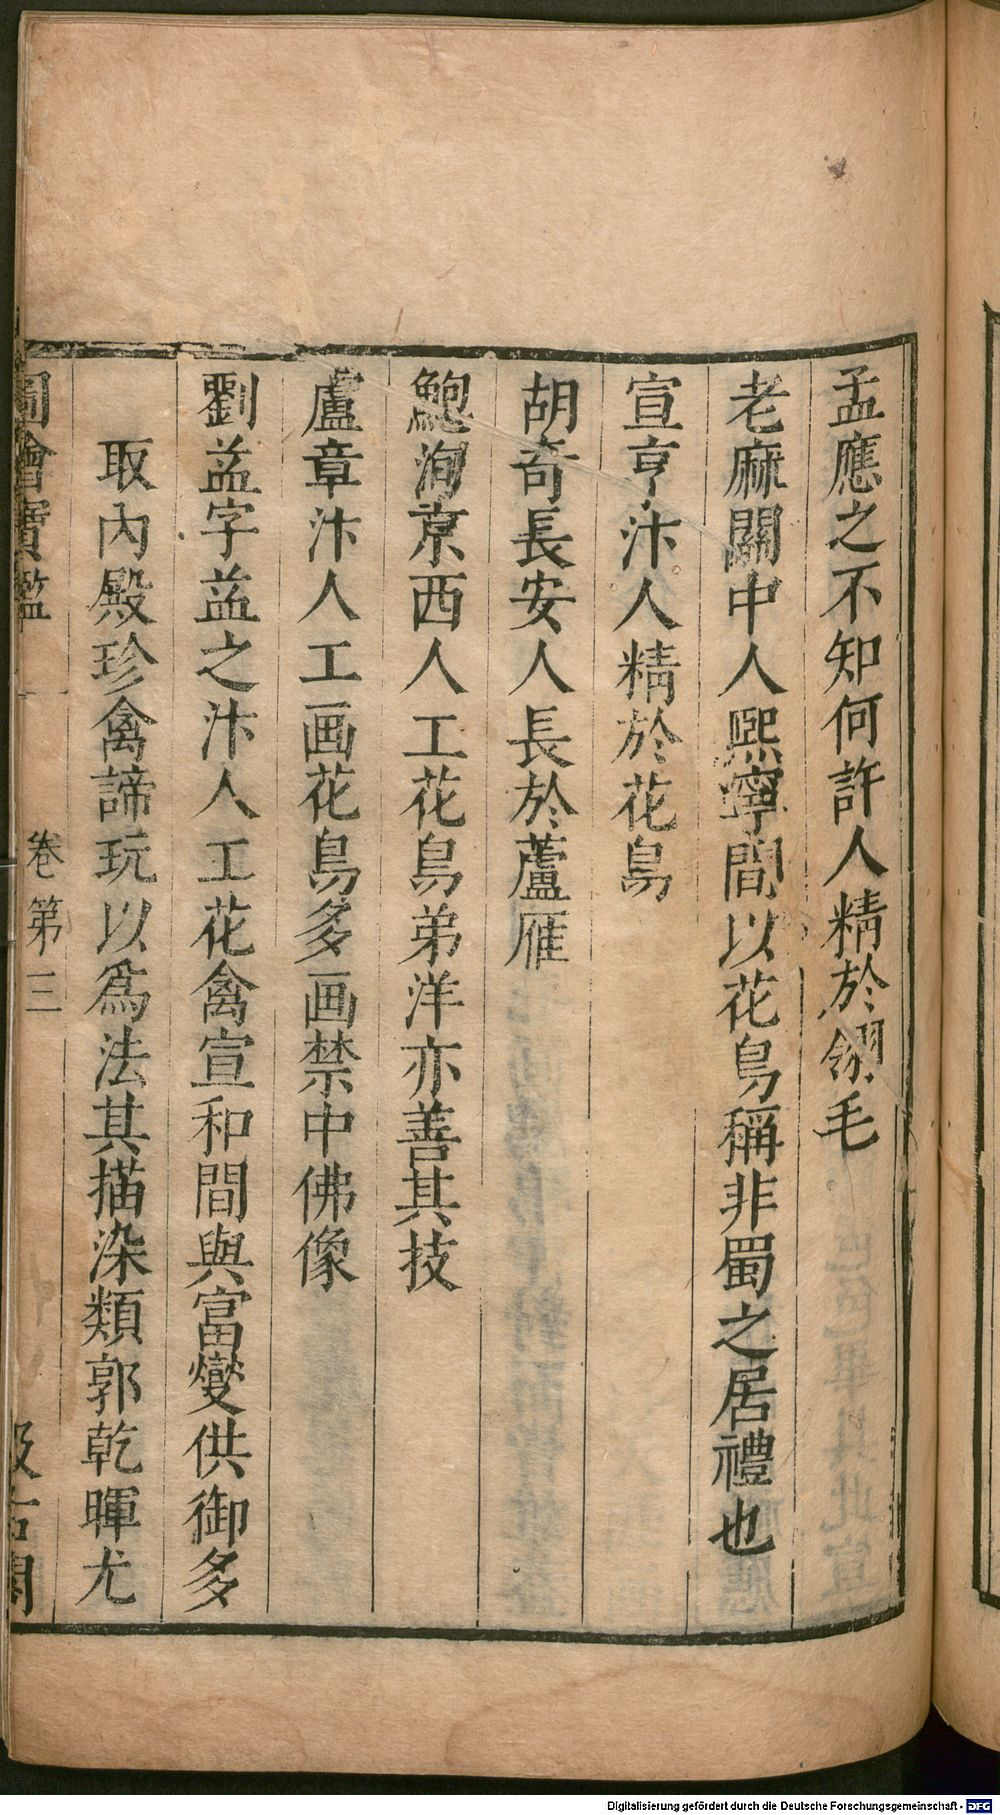 孟應之不知何許人精於翎毛
老麻關中人熙寧間以花鳥稱非蜀之居禮也
宣亨汴人精於花鳥
胡奇長安人長於蘆雁
鮑洵京西人工花鳥弟洋亦善其技
盧章汴人工画花鳥多画禁中佛像
劉益字益之汴人工花禽宣和間與富燮供御多
取内殿珍禽諦玩以爲法其描染類郭乾暉尤
圖繪寶鑑 卷第三 汲古閣
Digitalisierung gefördert durch die Deutsche Forschungsgemeinschaft - DFG